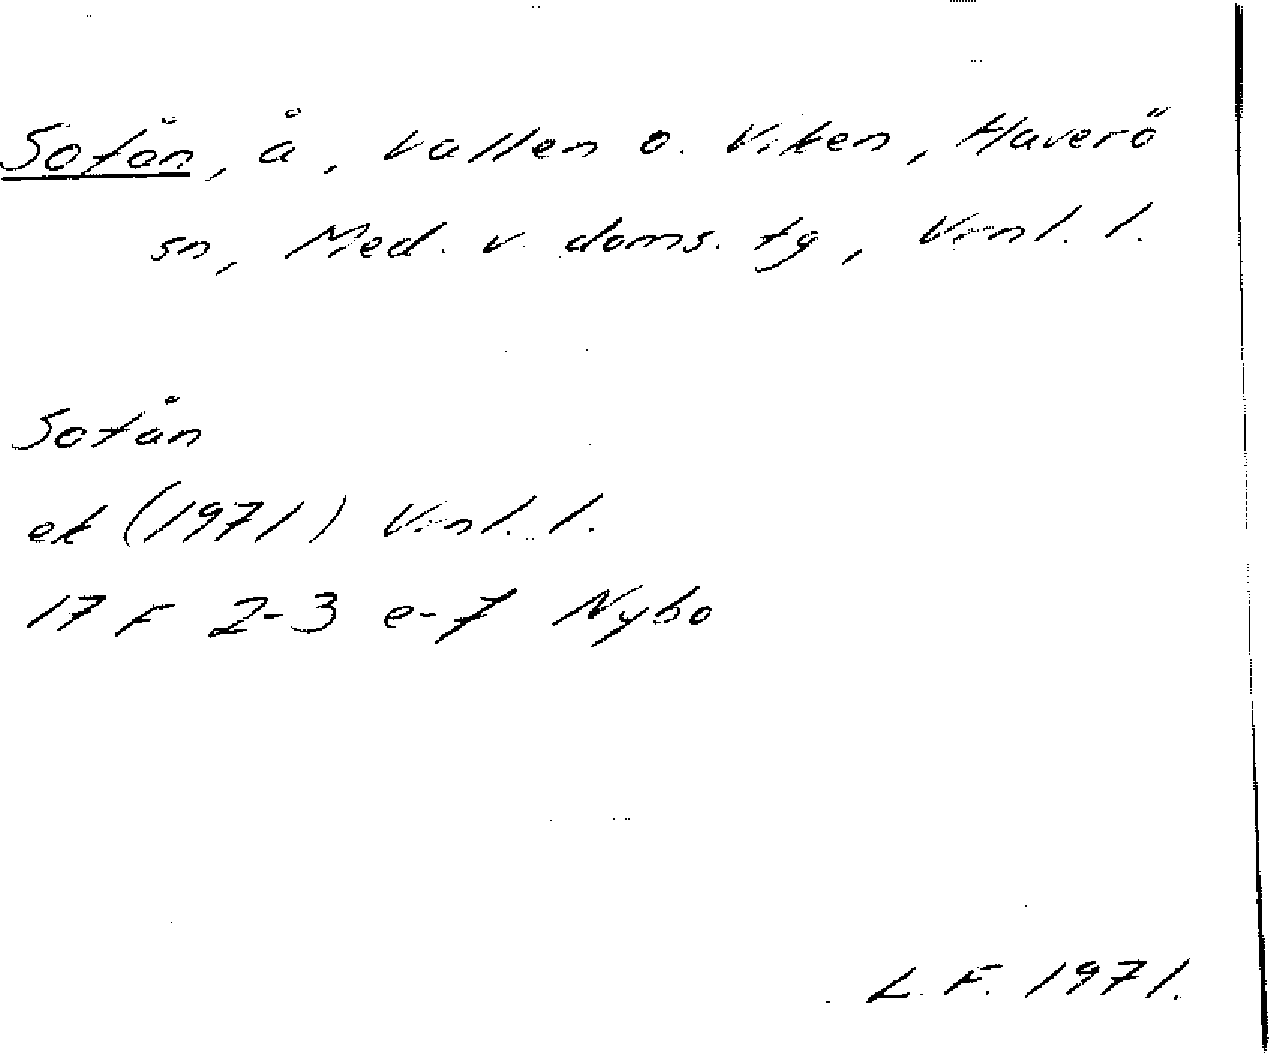 Sotån, å, Vallen o. Viken, Haverö
sn, Med. v. doms. tg, Vnl. l.
Sotån
ek (1971) Vnl. l.
17 F 2-3 e-f Nybo
L. F. 1971.